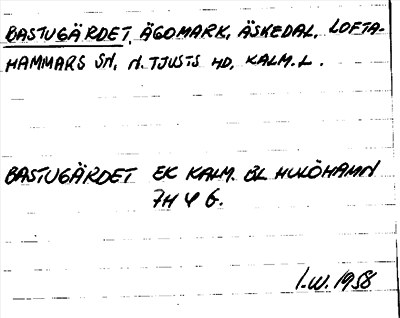 BASTUGÄRDET, ÄGOMARK, ÄSKEDAL, LOFTA-
HAMMARS SN, N. TJUSTS HD, KALM. L.
BASTUGÄRDET EK KALM. BL HULÖHAMN
7H 4 G.
I.W. 1958